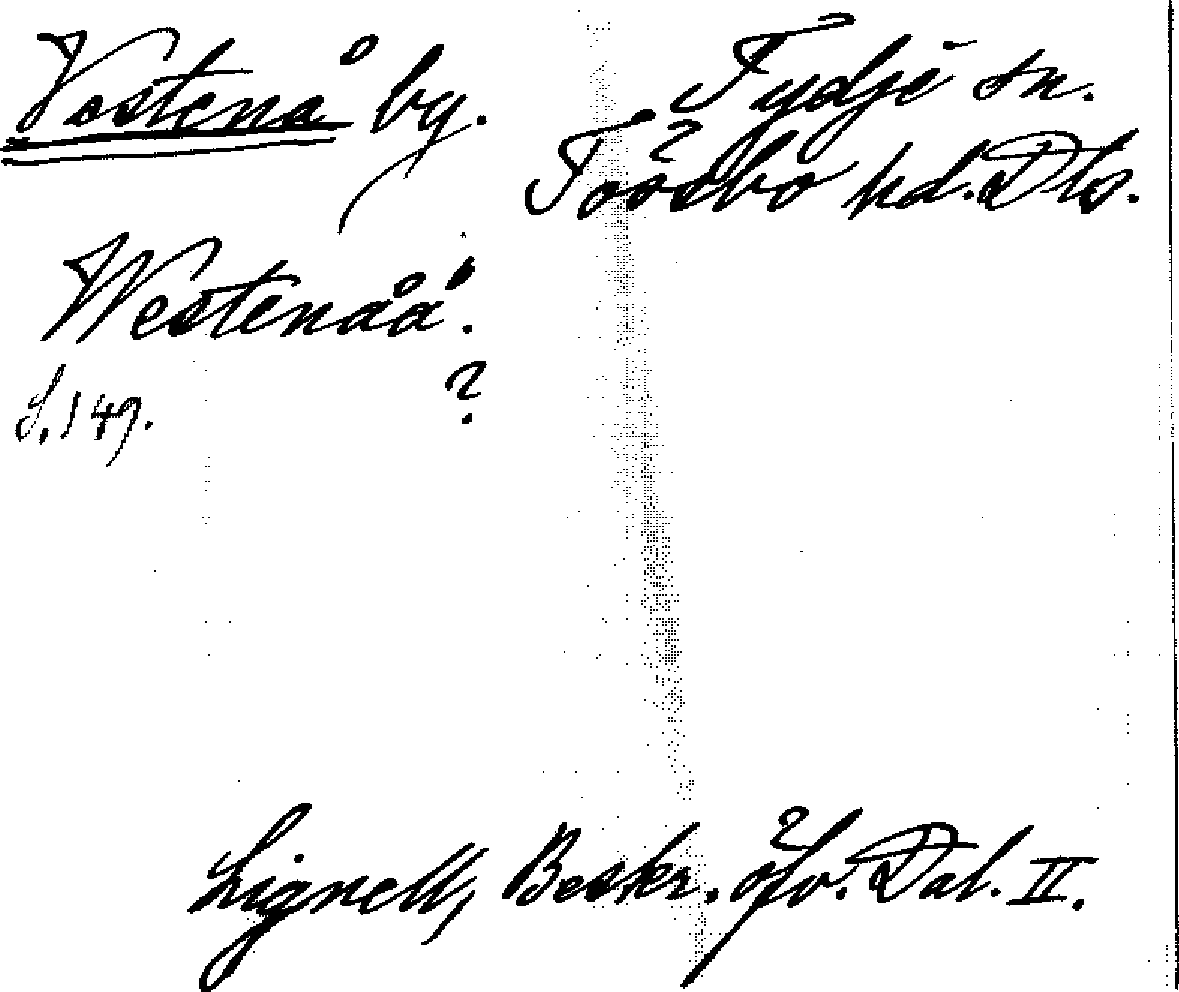 Vestenå by. Tydje sn.
Tössbo hd. Dls.
Westenåå.
?
S. 149.
Lignell, Beskr. öfv. Dal. II.